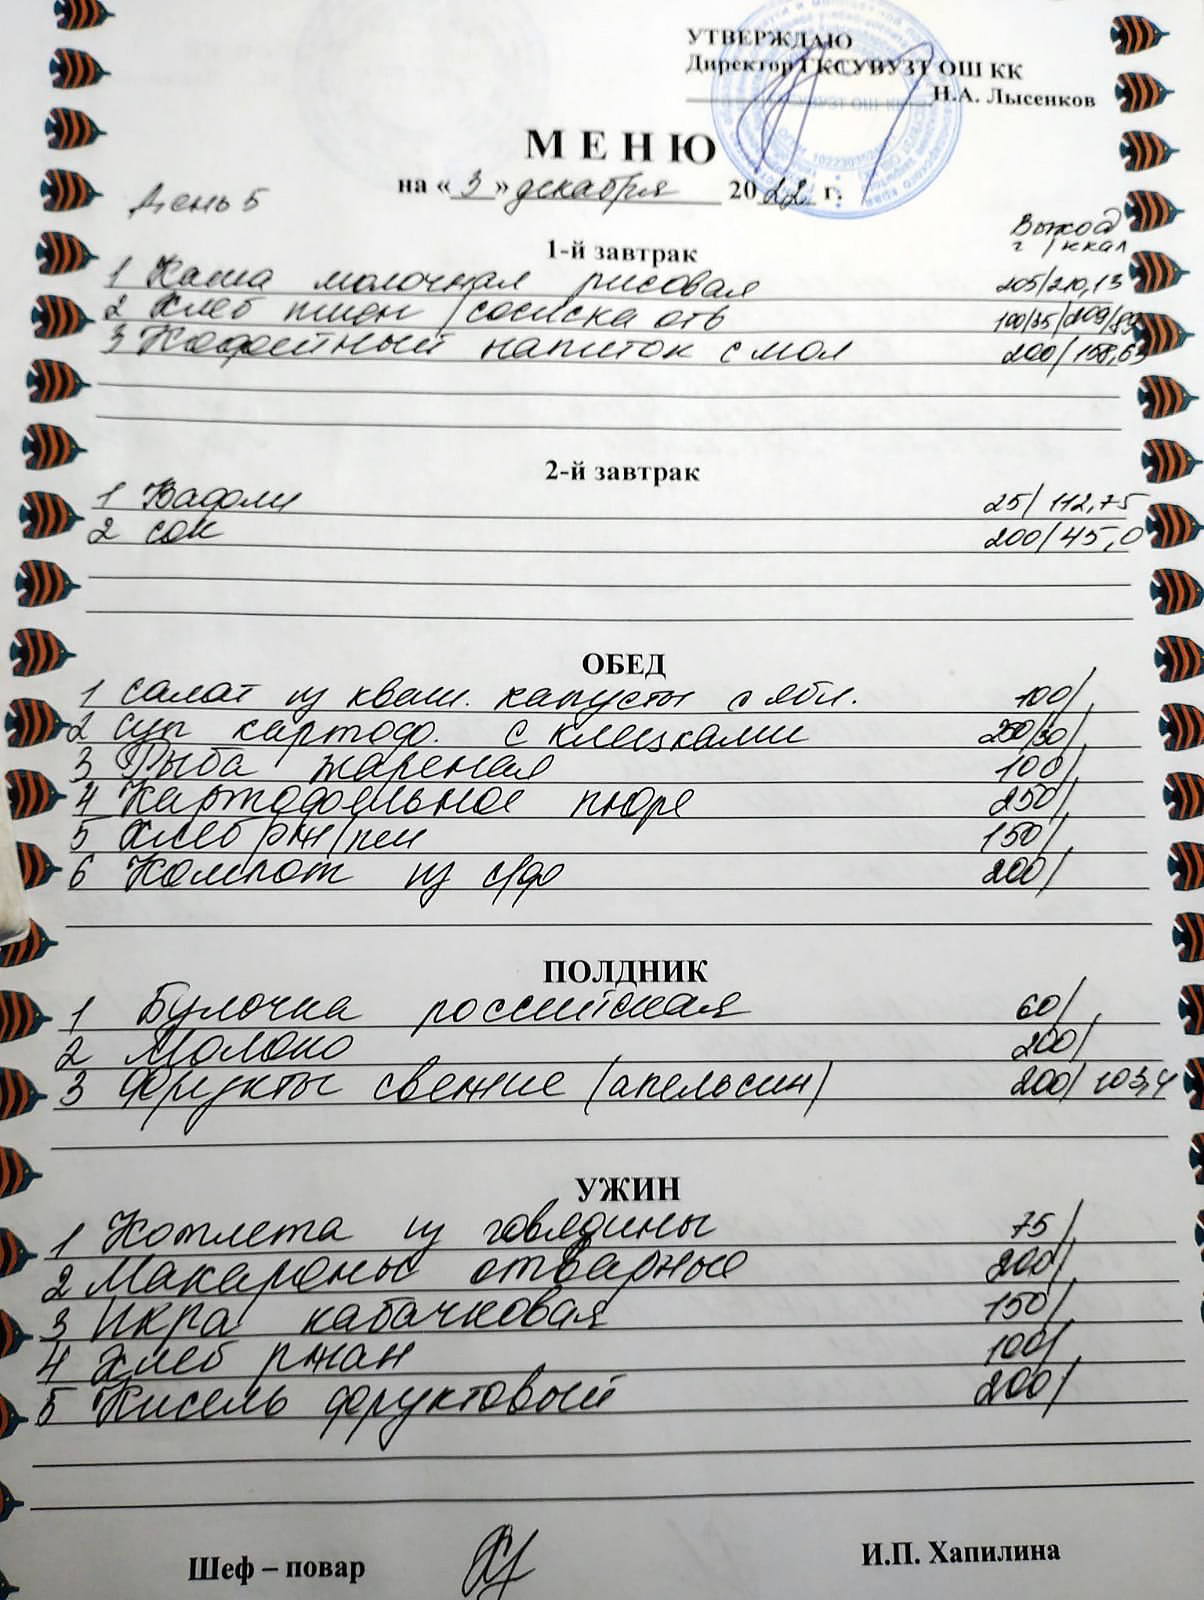 УТВЕРЖДАЮ
Директор ГКСУВУЗТ ОШ КК
Н.А. Лысенков
МЕНЮ
на «3» декабря 2022 г.
День 5
Выход
г / ккал
1-й завтрак
1 Каша молочная рисовая 205/210,13
2 Хлеб пшен /сосиска отв 100/35/209/89
3 Кофейный напиток с мол 200/158,63
2-й завтрак
1 Вафли 25/112,75
2 сок 200/45,0
ОБЕД
1 салат из кваш. капусты с ябл. 100/
2 суп картоф. с клецками 250/30/
3 Рыба жареная 100/
4 Картофельное пюре 250/
5 хлеб рж/пш 150/
6 Компот из с/ф 200/
ПОЛДНИК
1 Булочка российская 60/
2 Молоко 200/
3 Фрукты свежие /апельсин/ 200/103,4
УЖИН
1 Котлета из говядины 75/
2 Макароны отварные 200/
3 Икра кабачковая 150/
4 Хлеб ржан 100/
5 Кисель фруктовый 200/
Шеф – повар И.П. Хапилина